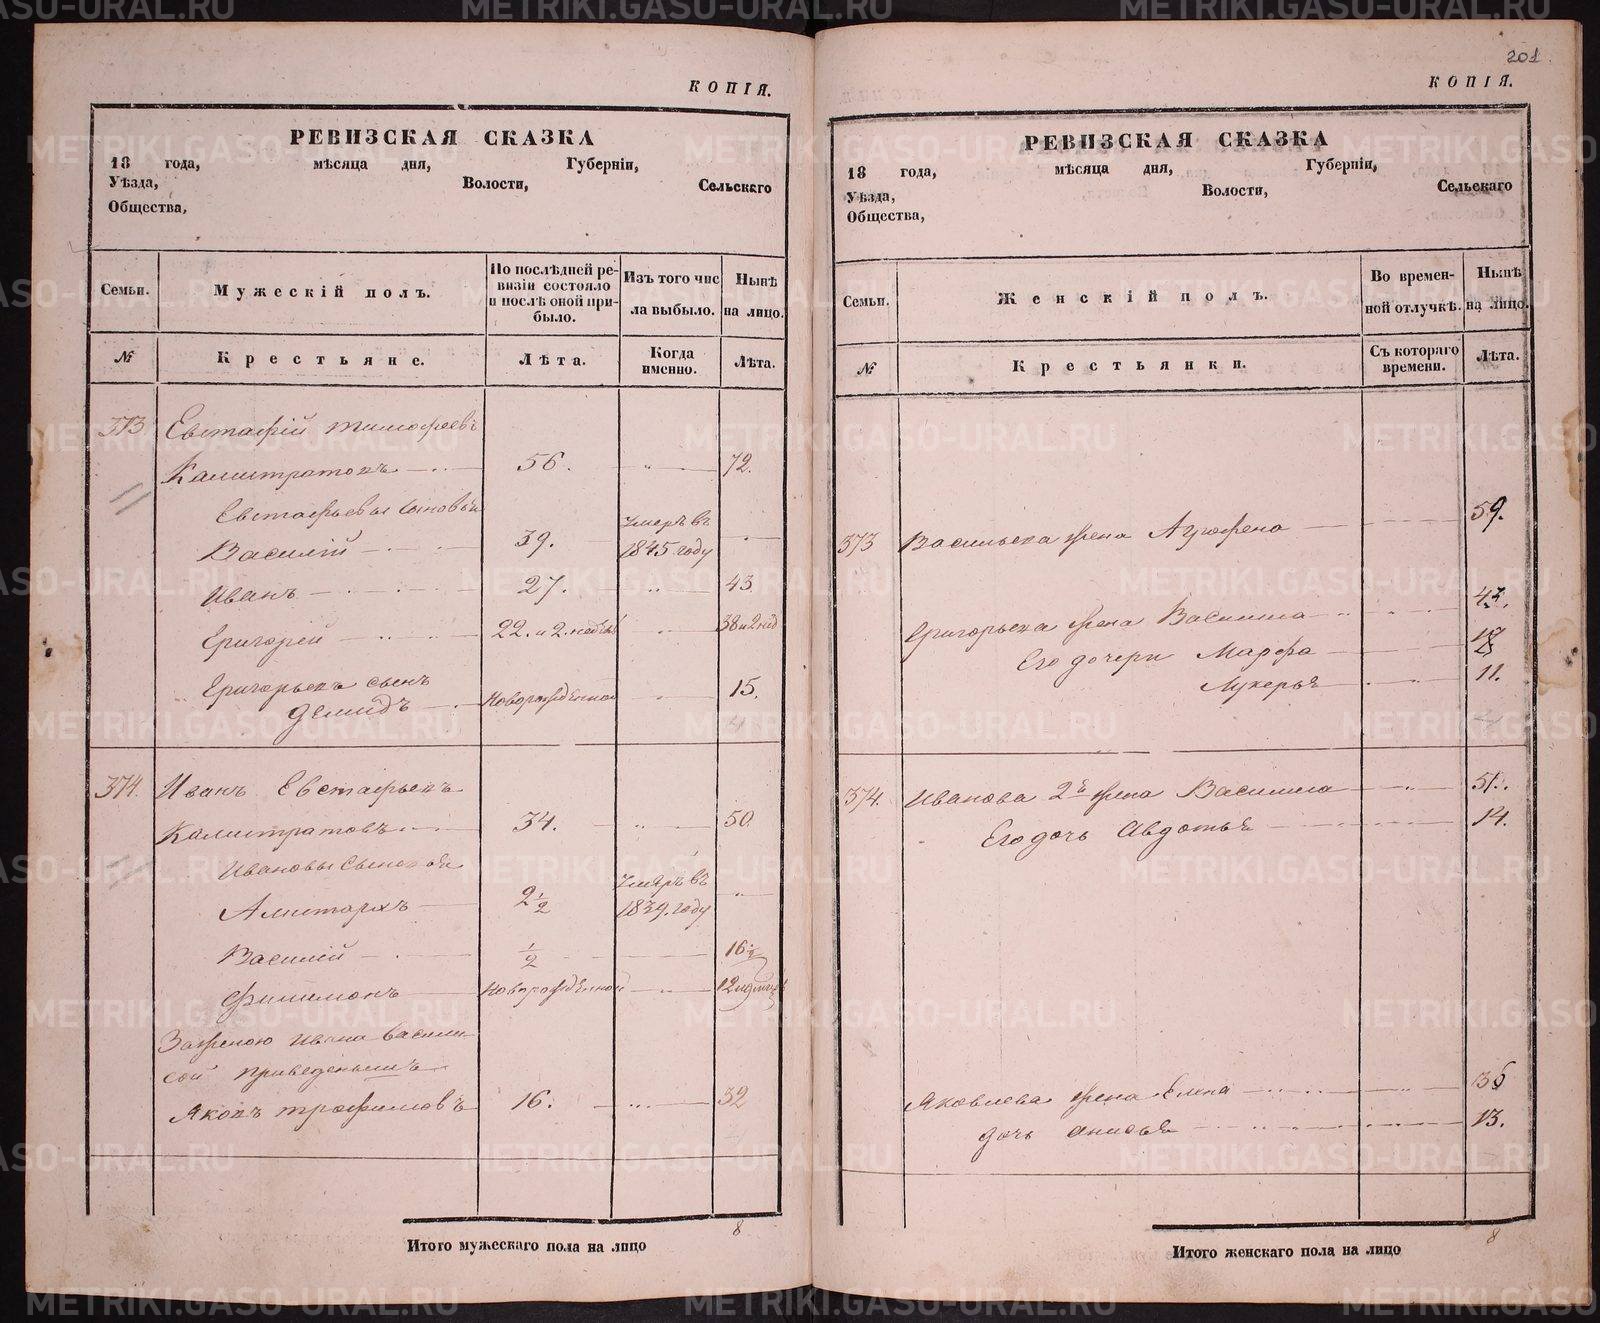 201
КОПІЯ.
РЕВИЗСКАЯ СКАЗКА
18 года, мѣсяца дня, Губерніи,
Уѣзда, Волости, Сельскаго
Общества,
Семьи. Мужескій полъ. По послѣдней ревизіи состояло и послѣ оной прибыло. Изъ того числа выбыло. Нынѣ на лицо.
№ Крестьяне. Лѣта. Когда именно. Лѣта.
373 Евстафій Тимофеевъ
Калистратовъ 56. 72.
Евстафьевы сыновья
Василій 39. Умеръ въ 1845 году
Иванъ 27. 43
Григорій 22. и 2. нед 38 и 2 нед
Григорьевъ сынъ
Демидъ Новорожденной 15.
4
374. Иванъ Евстафьевъ
Калистратовъ 34. 50.
Ивановы сыновья
Алистархъ 2½ Умеръ въ 1839. году
Василій ½ 16½
Филимонъ Новорожденной
Заженою Ивана Василисой приведенышъ
Яковъ Трофимовъ 16. 32
8
Итого мужескаго пола на лицо
КОПІЯ.
РЕВИЗСКАЯ СКАЗКА
18 года, мѣсяца дня, Губерніи,
Уѣзда, Волости, Сельскаго
Общества,
Семьи. Женскій полъ. Во временной отлучкѣ. Нынѣ на лицо.
№ Крестьянки. Съ котораго времени. Лѣта.
373 Васильева жена Агафена 59.
Григорьева жена Василиса 43.
Его дочери Марфа
Лукерья 11.
374. Иванова 2я жена Василиса 51.
Его дочь Авдотья 14.
Яковлева жена Елена 36
дочь Анисья 13.
8
Итого женскаго пола на лицо
METRIKI.GASO-URAL.RU